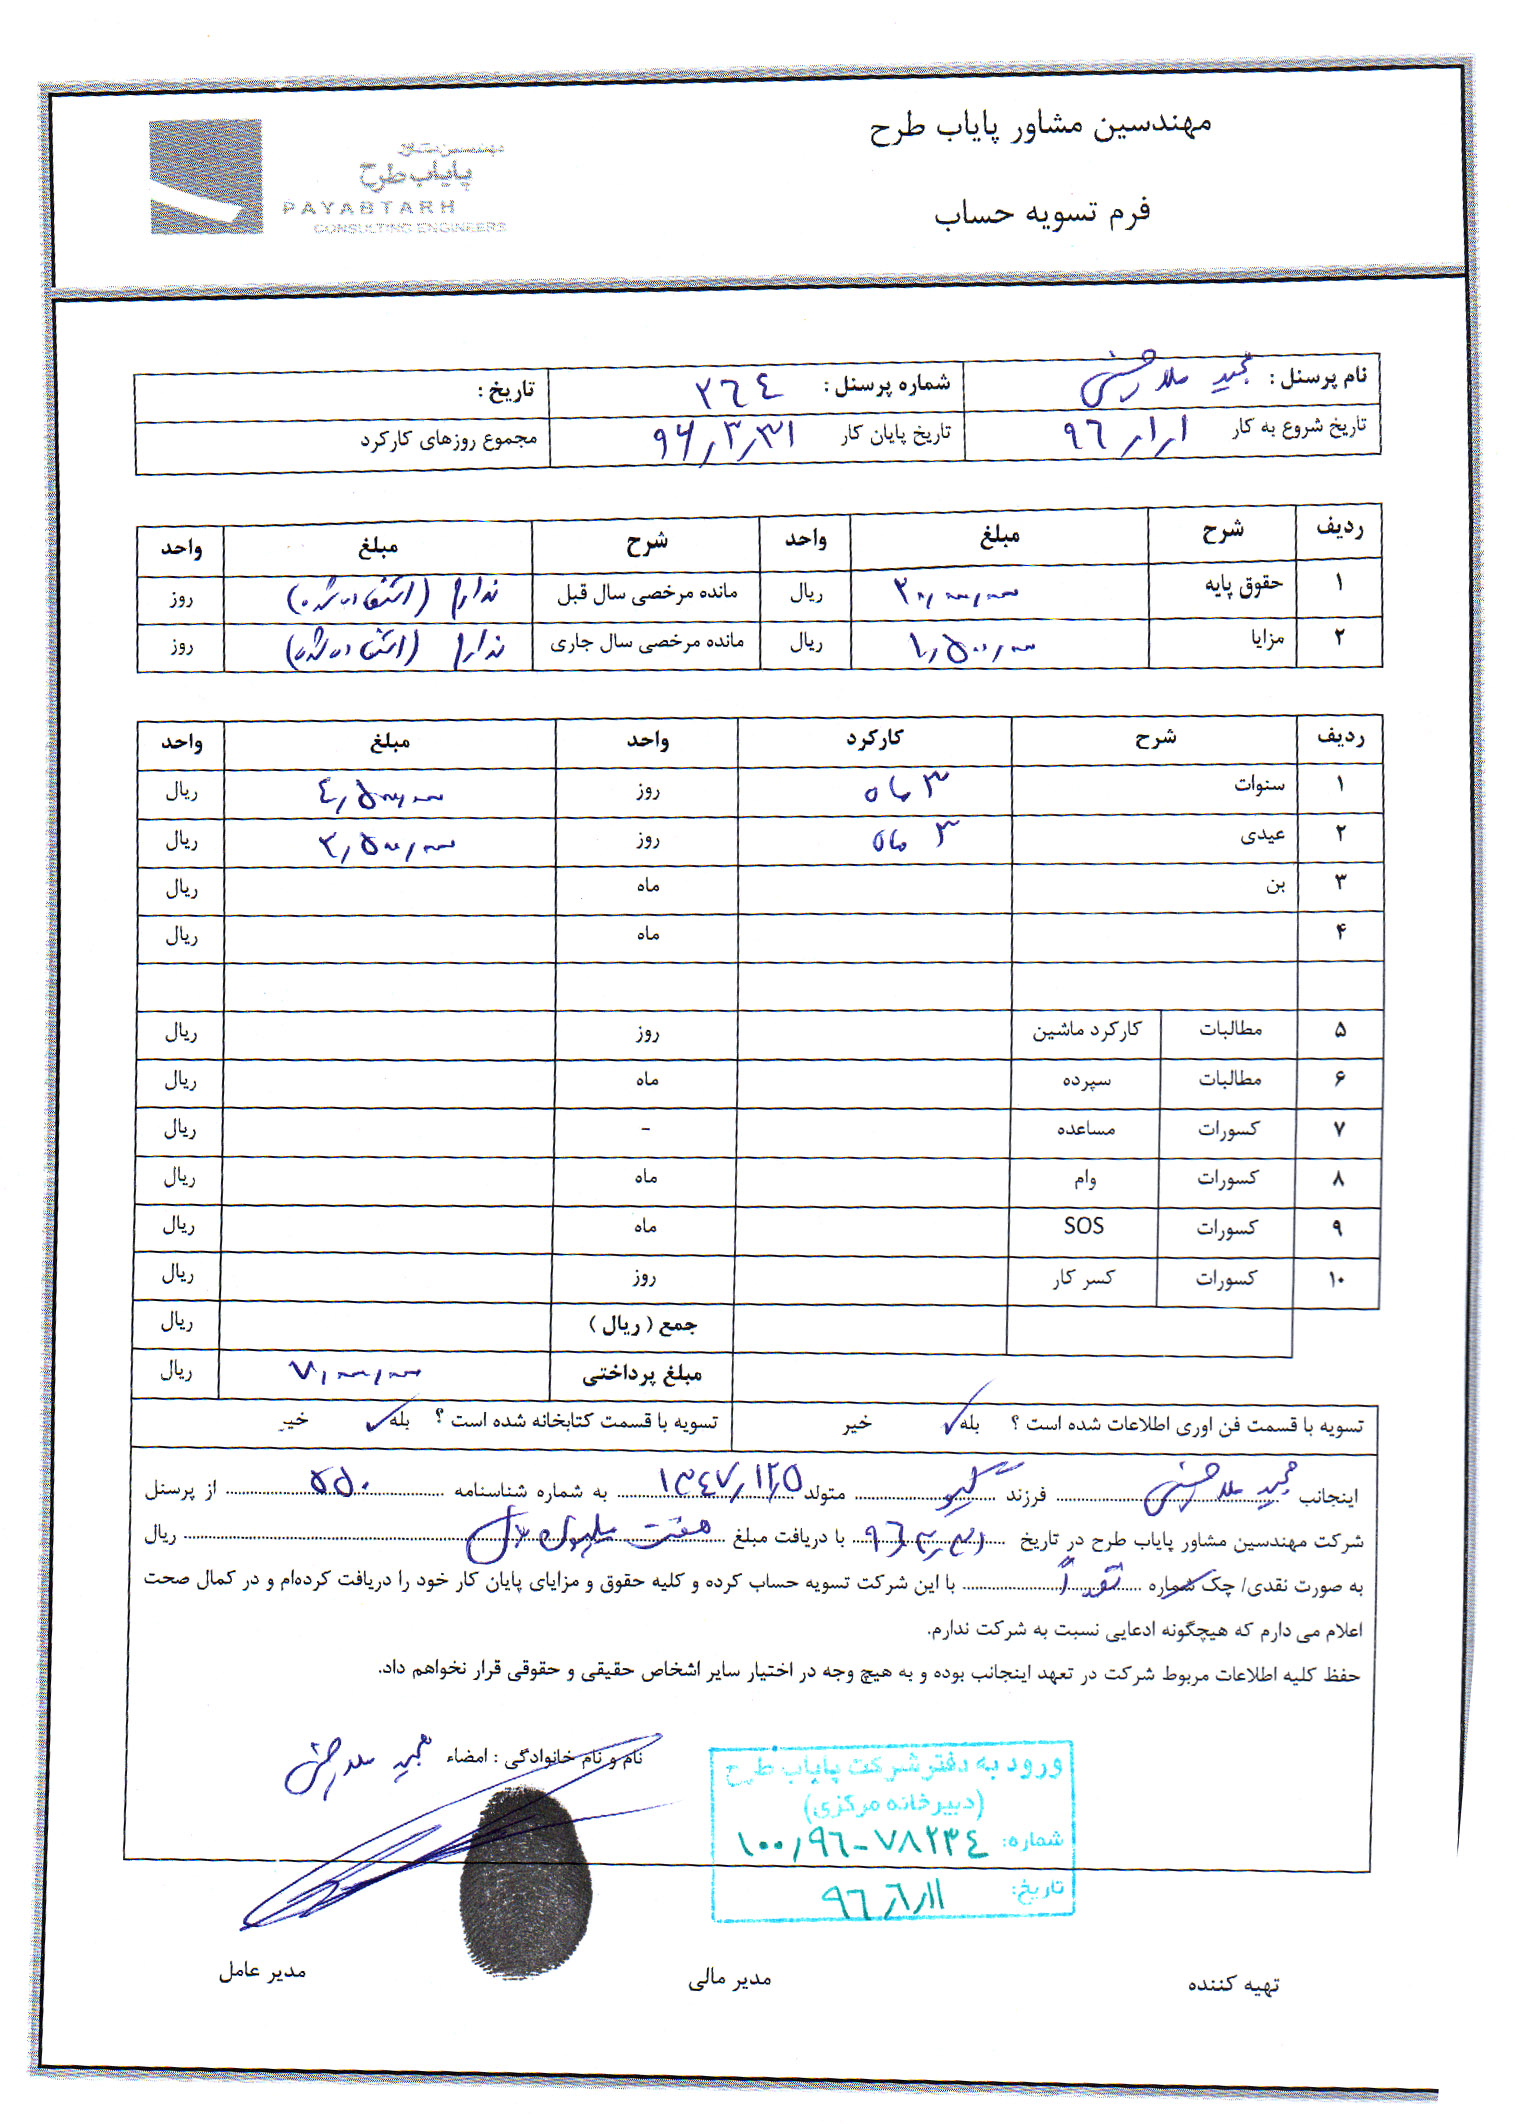 مهندسین مشاور پایاب طرح
فرم تسویه حساب
مهندسین مشاور
پایاب طرح
PAYABTARH
CONSULTING ENGINEERS
نام پرسنل : مجید ملارحسنی شماره پرسنل : ۲۶٤ تاریخ :
تاریخ شروع به کار ۹٦٫۱٫۱ تاریخ پایان کار ۹۶٫۳٫۳۱ مجموع روزهای کارکرد
ردیف شرح مبلغ واحد شرح مبلغ واحد
۱ حقوق پایه ریال مانده مرخصی سال قبل ندارم (استفاده شده) روز
۲ مزایا ریال مانده مرخصی سال جاری ندارم (استفاده شده) روز
ردیف شرح کارکرد واحد مبلغ واحد
۱ سنوات ۳ ماه روز ٤٫۵۰۰٫۰۰۰ ریال
۲ عیدی ۳ ماه روز ۲٫۵۰۰٫۰۰۰ ریال
۳ بن ماه ریال
۴ ماه ریال
۵ مطالبات کارکرد ماشین روز ریال
۶ مطالبات سپرده ماه ریال
۷ کسورات مساعده - ریال
۸ کسورات وام ماه ریال
۹ کسورات SOS ماه ریال
۱۰ کسورات کسر کار روز ریال
جمع ( ریال ) ریال
مبلغ پرداختی ۷٫۰۰۰٫۰۰۰ ریال
تسویه با قسمت فن اوری اطلاعات شده است ؟ بله ✓ خیر تسویه با قسمت کتابخانه شده است ؟ بله ✓ خیر
اینجانب مجید فرزند گیو متولد ۱۳٤۷٫۱۲٫۵ به شماره شناسنامه ۵۵۰ از پرسنل
شرکت مهندسین مشاور پایاب طرح در تاریخ ۹٦٫۳٫۳۱ با دریافت مبلغ هفت میلیون ریال ریال
به صورت نقدی/ چک شماره نقداً با این شرکت تسویه حساب کرده و کلیه حقوق و مزایای پایان کار خود را دریافت کرده‌ام و در کمال صحت
اعلام می دارم که هیچگونه ادعایی نسبت به شرکت ندارم.
حفظ کلیه اطلاعات مربوط شرکت در تعهد اینجانب بوده و به هیچ وجه در اختیار سایر اشخاص حقیقی و حقوقی قرار نخواهم داد.
نام و نام خانوادگی : امضاء مجید
ورود به دفتر شرکت پایاب طرح
(دبیرخانه مرکزی)
شماره: ۱۰۰٫۹٦-۷۸۲۳٤
تاریخ: ۹٦٫٦٫۱۱
تهیه کننده مدیر مالی مدیر عامل